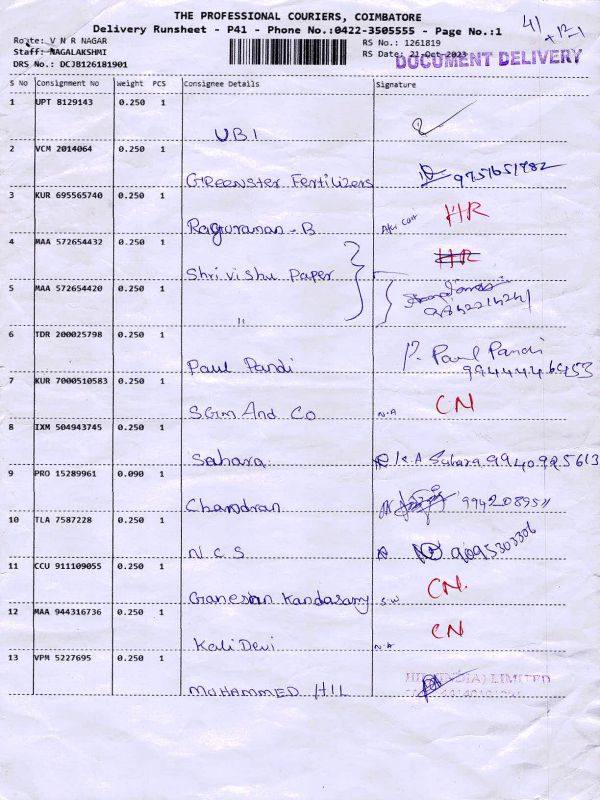 THE PROFESSIONAL COURIERS, COIMBATORE
Delivery Runsheet - P41 - Phone No.:0422-3505555 - Page No.:1
41
Route: V N R NAGAR
RS No.: 1261819
Staff: NAGALAKSHMI
RS Date: 21-Oct-2023
DOCUMENT DELIVERY
DRS No.: DCJB126181901
S No Consignment No Weight PCS Consignee Details Signature
1 UPT 8129143 0.250 1
UBI
2 VCM 2014064 0.250 1
Greenster Fertilizers 9751651782
3 KUR 695565740 0.250 1
Raguraman - B HR
4 MAA 572654432 0.250 1
Shri vishu Paper HR
5 MAA 572654420 0.250 1
"
6 TDR 200025798 0.250 1
Paul Pandi P. Paul Pandi
7 KUR 7000510583 0.250 1
SGM And Co N-A CN
8 IXM 504943745 0.250 1
Sahara K.A Sahara 9940925613
9 PRO 15289961 0.090 1
Chandran
10 TLA 7587228 0.250 1
N C S 9095303306
11 CCU 911109055 0.250 1
Ganesan Kandasamy S.W CN.
12 MAA 944316736 0.250 1
Kali Devi N-A CN
13 VPM 5227695 0.250 1
MUHAMMED HIL (INDIA) LIMITED